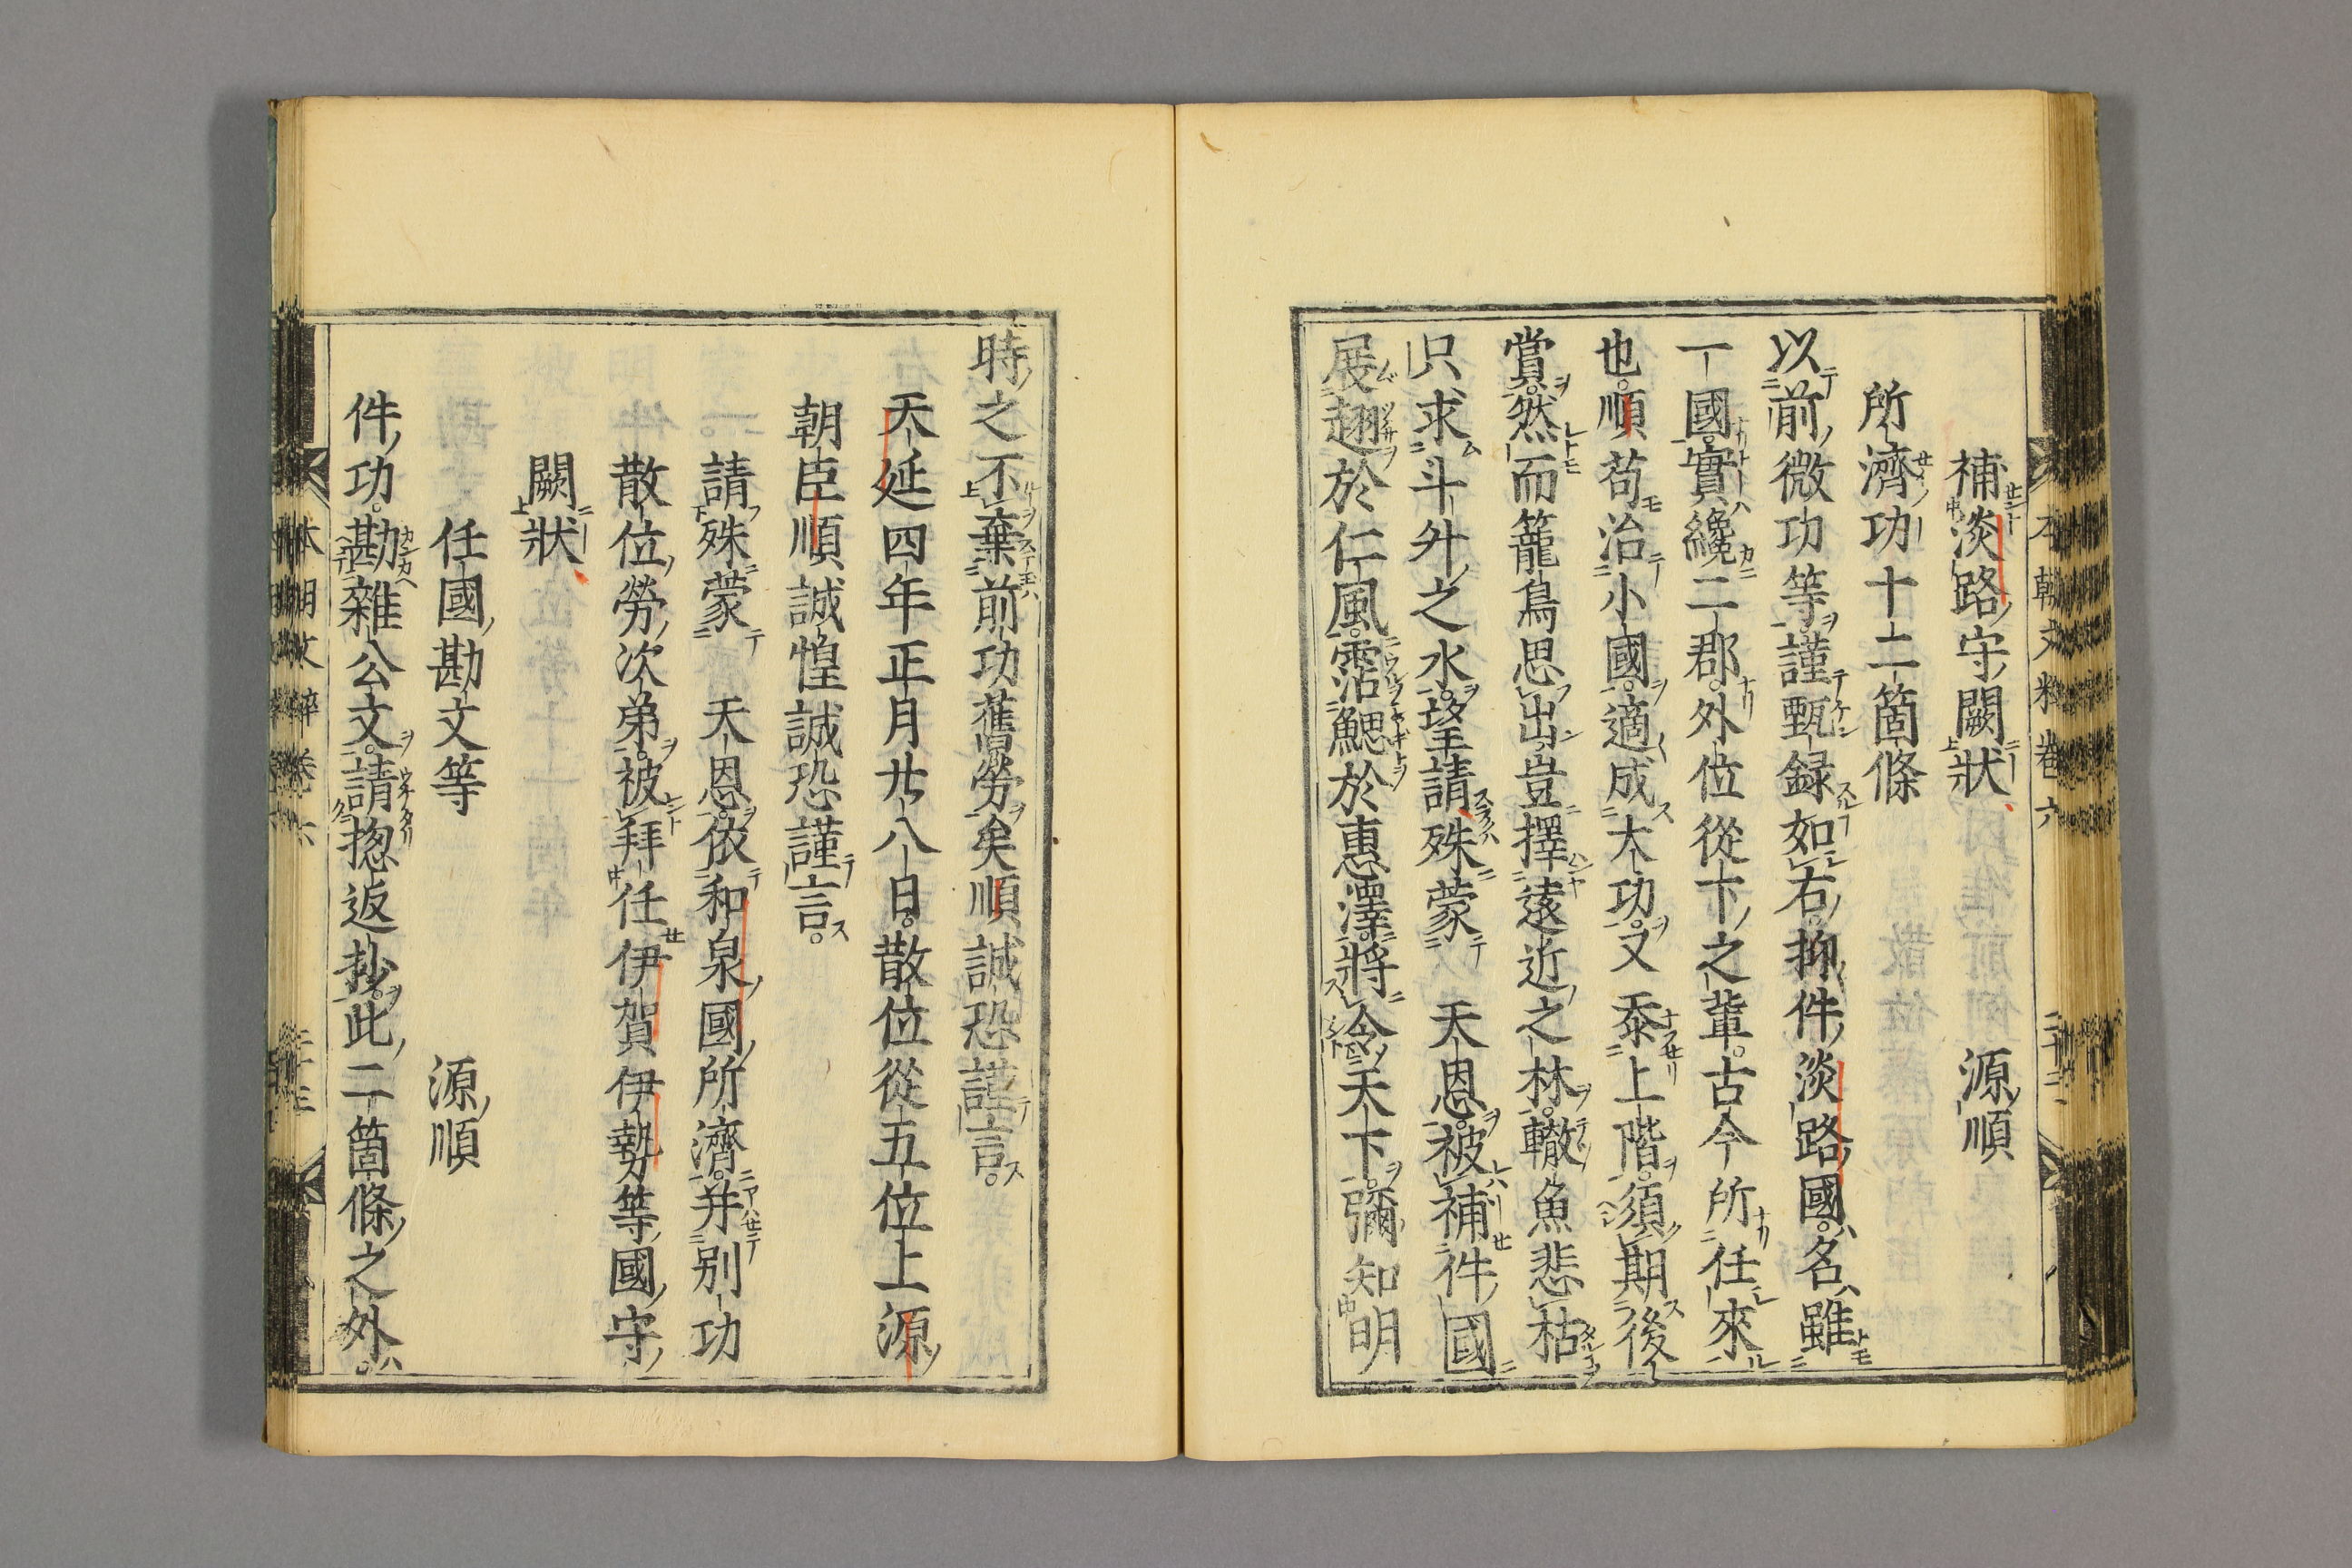 補淡路守闕狀　源順
所濟功十二箇條
以前微功等謹甄録如右抑件淡路國名雖
一國實纔二郡外位從下之輩古今所任來
也順苟治小國適成大功又忝上階須期後
賞然而籠鳥思出豈擇遠近之林轍魚悲枯
只求斗升之水望請殊蒙　天恩被補件國
展翅於仁風霑鰓於惠澤將令天下彌知明
時之不棄前功舊勞矣順誠恐謹言
天延四年正月廿八日散位從五位上源
朝臣順誠惶誠恐謹言
請殊蒙　天恩依和泉國所濟并別功
散位勞次第被拜任伊賀伊勢等國守
闕狀
任國勘文等　源順
件功勘雜公文請惣返抄此二箇條之外